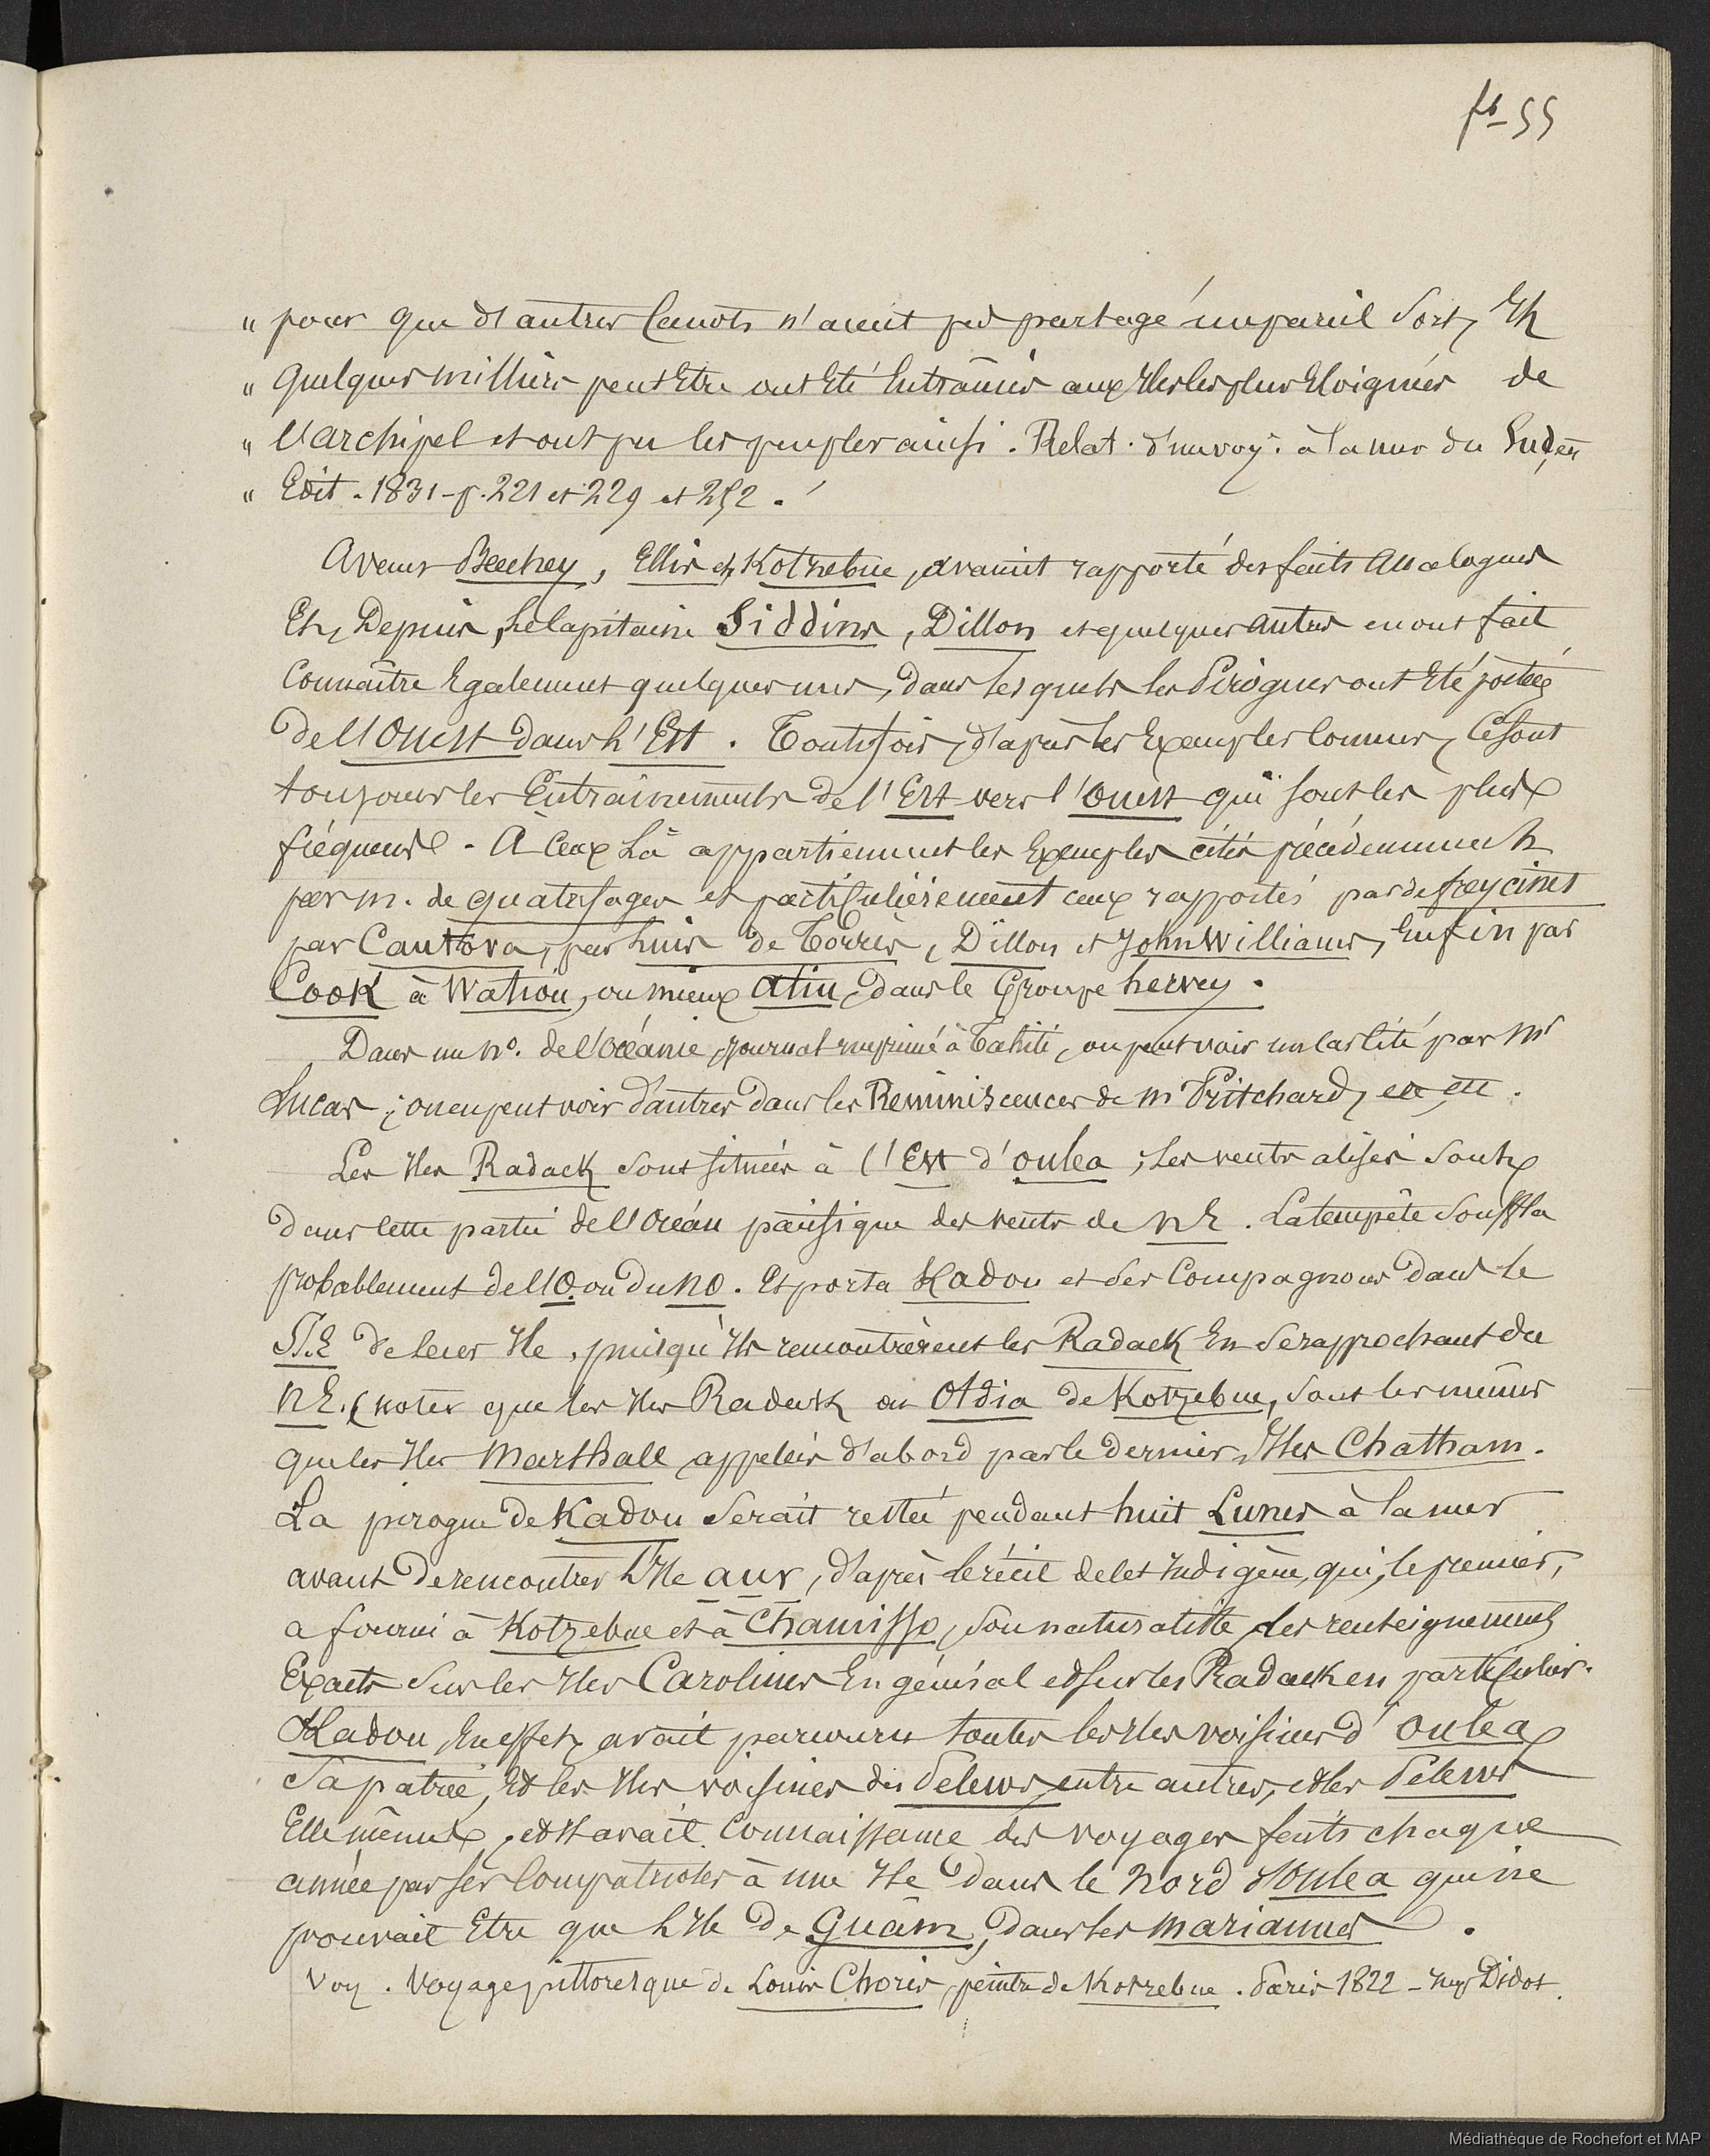 fo 55
" pour que d'autres Canots n'aient pas partagé un pareil Sort, Et
" Quelques milliers peut Etre ont Eté Entrainés aux Iles les plus Eloignées de
" l'archipel et ont pu les peupler ainsi. Relat. d'un voy. à la mer du Sud, en
" Edit. 1831 - p. 221 et 229 et 252.
Avant Beechey, Ellis et Kotzebue, avaient rapporté des faits Analogues
Et, Depuis, le Capitaine Siddins, Dillon et quelques autres en ont fait
Connaître Egalement quelques uns, dans lesquels les Pirogues ont Eté portées
de l'Ouest dans l'Est. Toutefois, d'après les Exemples Connus, Ce sont
toujours les Entrainements de l'Est vers l'Ouest qui sont les plus
fréquents. A Ceux là appartiennent les Exemples cités précédemment
par M. de quatrefages et particulièrement ceux rapportés par de freycinet
par Cantova, par Luis de Torrès, Dillon et John Williams, Enfin par
Cook à Watiou, ou mieux Atiu, dans le Groupe hervey.
Dans un No. de l'Océanie, journal imprimé à Tahiti, on peut voir un Cas Cité par Mr
Lucas ; on en peut voir d'autres dans les Réminiscences de M Pritchard, etc etc.
Les Iles Radack sont situées à l'Est d'Oulea ; les vents alisés sont
dans Cette partie de l'Océan pacifique des vents de NE. La tempête Souffla
probablement de l'O. ou du NO. Et porta Kadou et ses Compagnons dans le
S.E de leur Ile, puisqu'ils rencontrèrent les Radack En Se rapprochant du
NE. (noter que les Iles Radack ou Otdia de Kotzebue, sont les mêmes
que les Iles Marshall appelées d'abord par le dernier, Iles Chatham.
La pirogue de Kadou Serait restée pendant huit Lunes à la mer
avant de rencontrer l'Ile aur, d'après le récit de Cet Indigène, qui, le premier,
a fourni à Kotzebue et à Chamisso, Son naturaliste, des renseignements
Exacts Sur les Iles Carolines En général et sur les Radack en particulier.
Kadou, En effet, avait parcouru toutes les Iles voisines d'Oulea
Sa patrie, Et les Iles voisines des Pelews, entre autres, et les Pelews
Elle mêmes, et il avait Connaissance des voyages faits chaque
année par ses Compatriotes à une Ile dans le Nord d'Oulea qui ne
pouvait Etre que l'Ile de Guam, dans les Mariannes.
Voy. Voyage pittoresque de Louis Choris, peintre de Kotzebue. Paris 1822 - Imp Didot.
Médiathèque de Rochefort et MAP